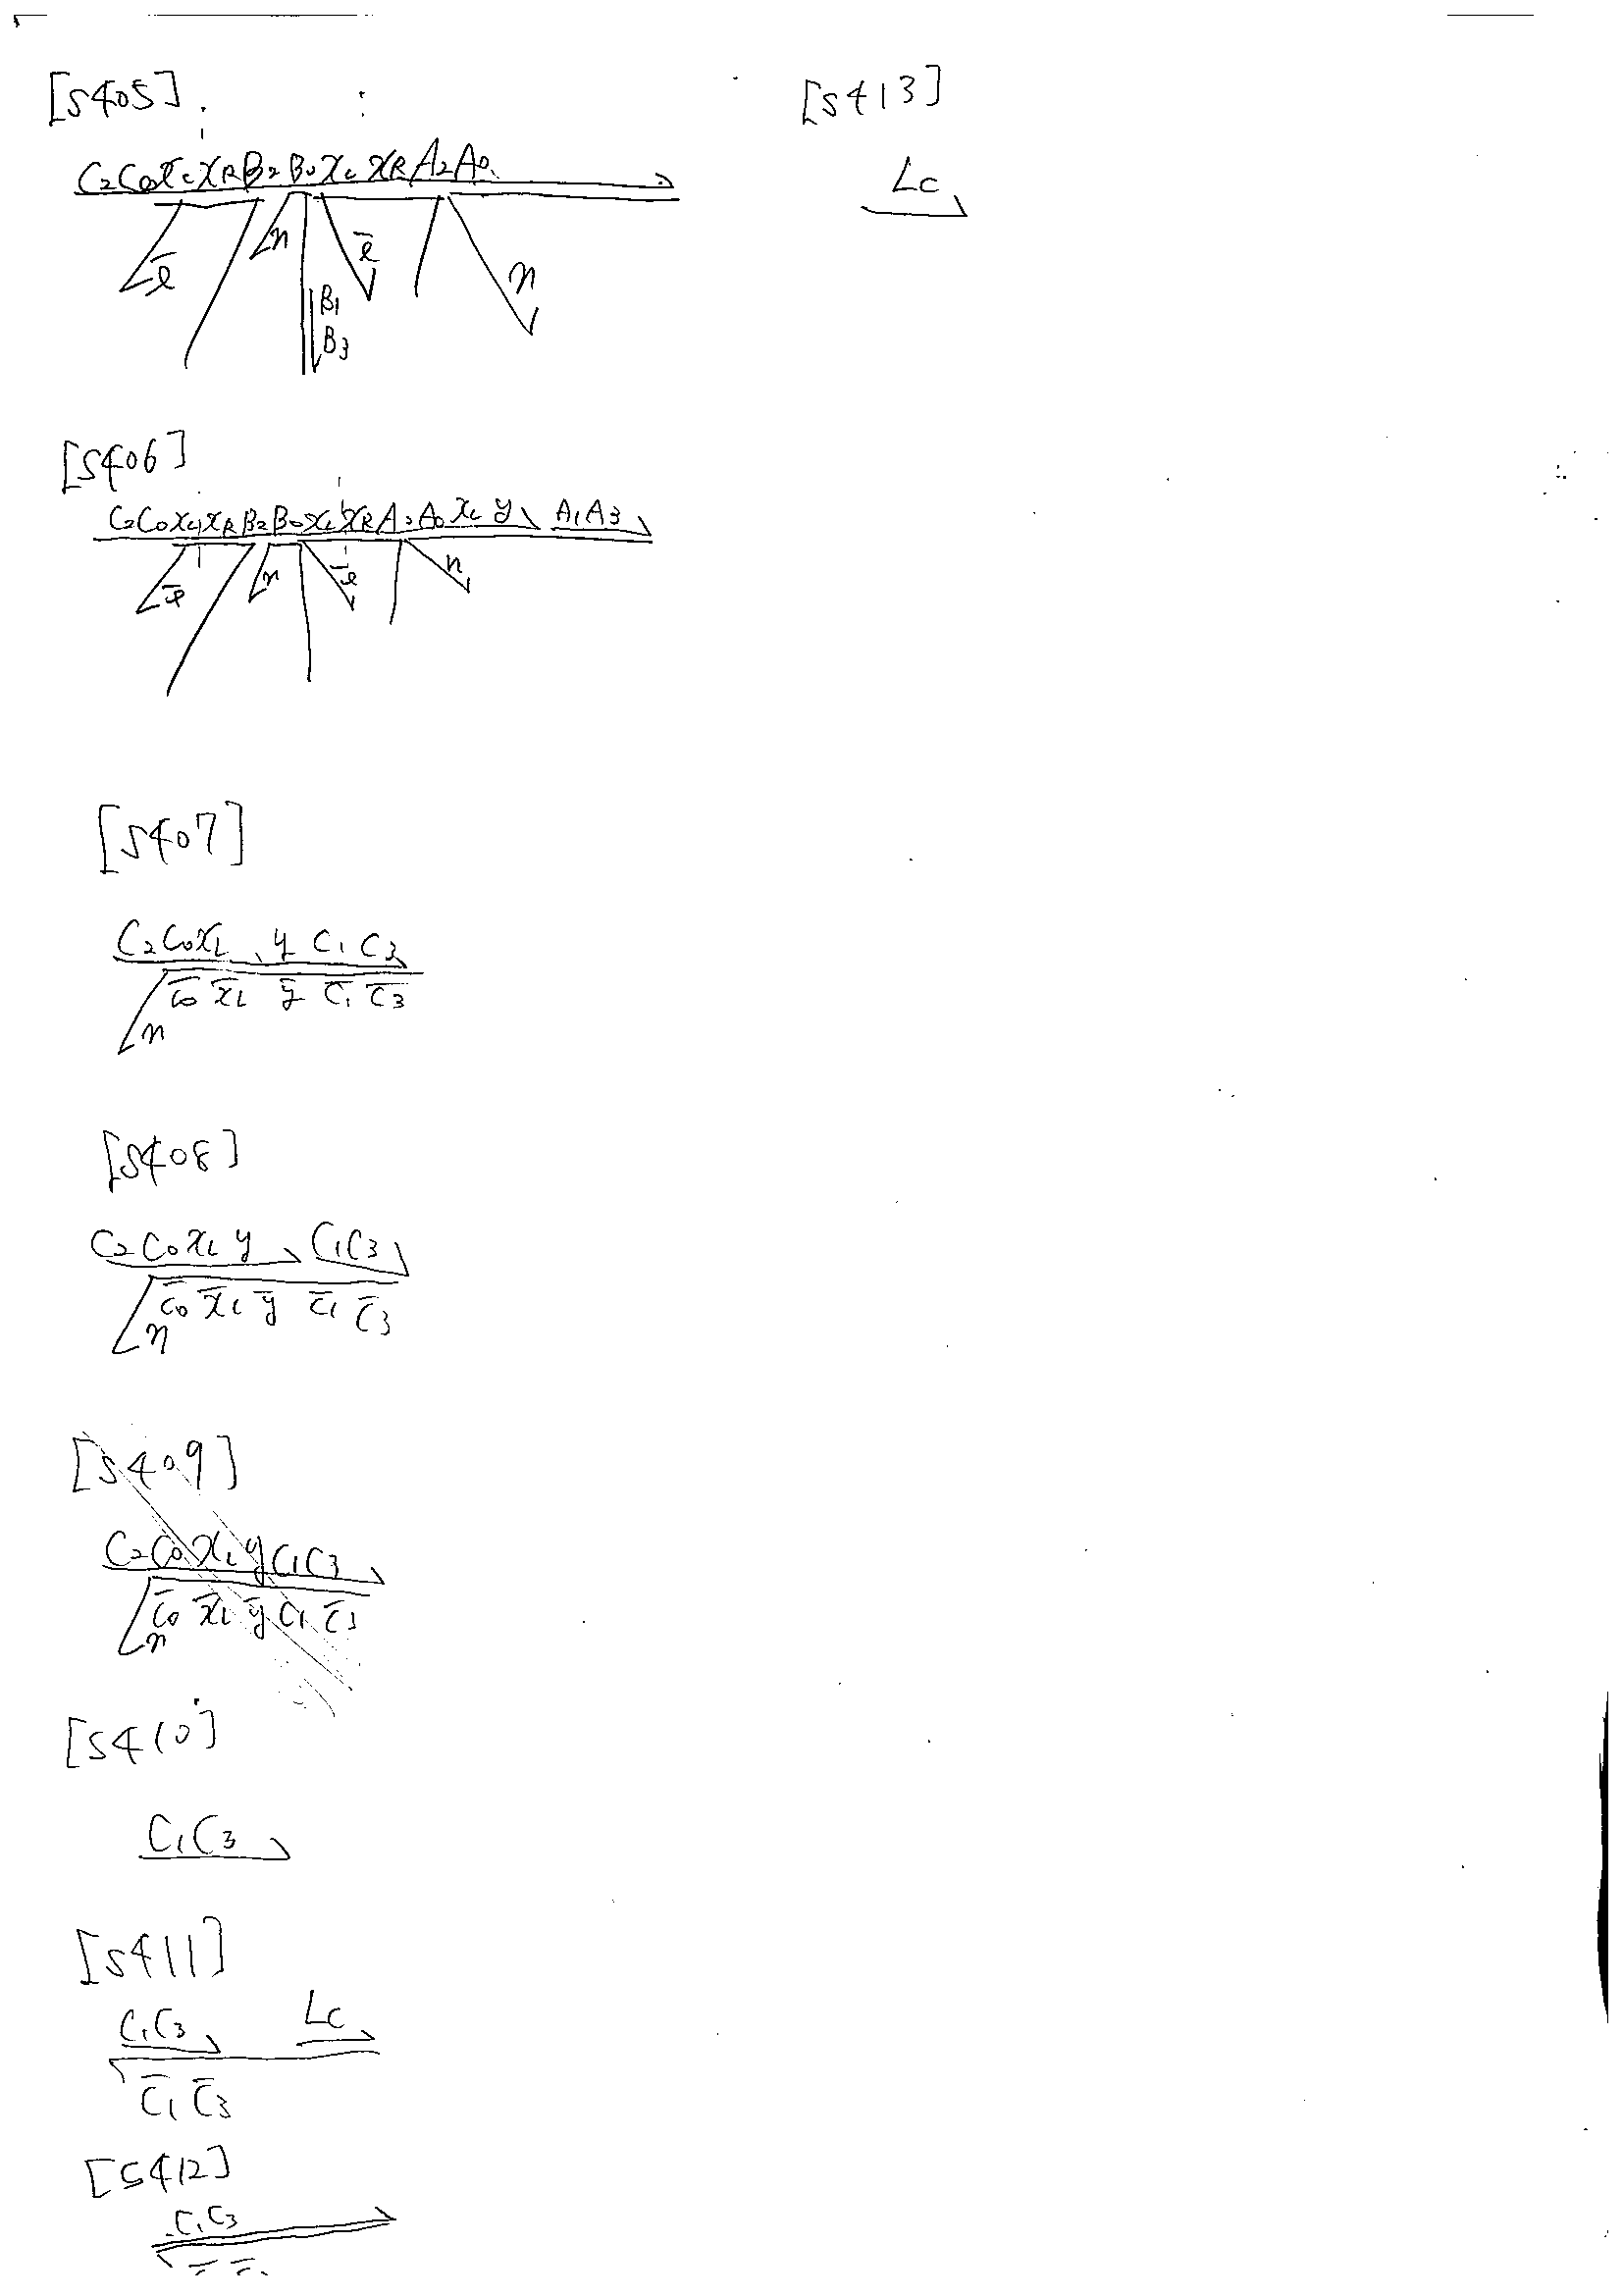 [S405]
C₂C₀x_L x_R B₂ B₀ x_L x_R A₂ A₀
n
n
B₁
B₃
[S406]
C₂C₀x_L x_R B₂ B₀ x_L x_R A₂ A₀ x_L y A₁A₃
n
n
[S407]
C₂C₀x_L y C₁ C₃
C̄₀ x̄_L ȳ C̄₁ C̄₃
n
[S408]
C₂C₀x_L y C₁C₃
C̄₀ x̄_L ȳ C̄₁ C̄₃
n
[S409]
C₂C₀x_L y C₁C₃
C̄₀ x̄_L ȳ C̄₁ C̄₃
n
[S410]
C₁C₃
[S411]
C₁C₃ Lc
C̄₁ C̄₃
[S412]
C₁C₃
[S413]
Lc